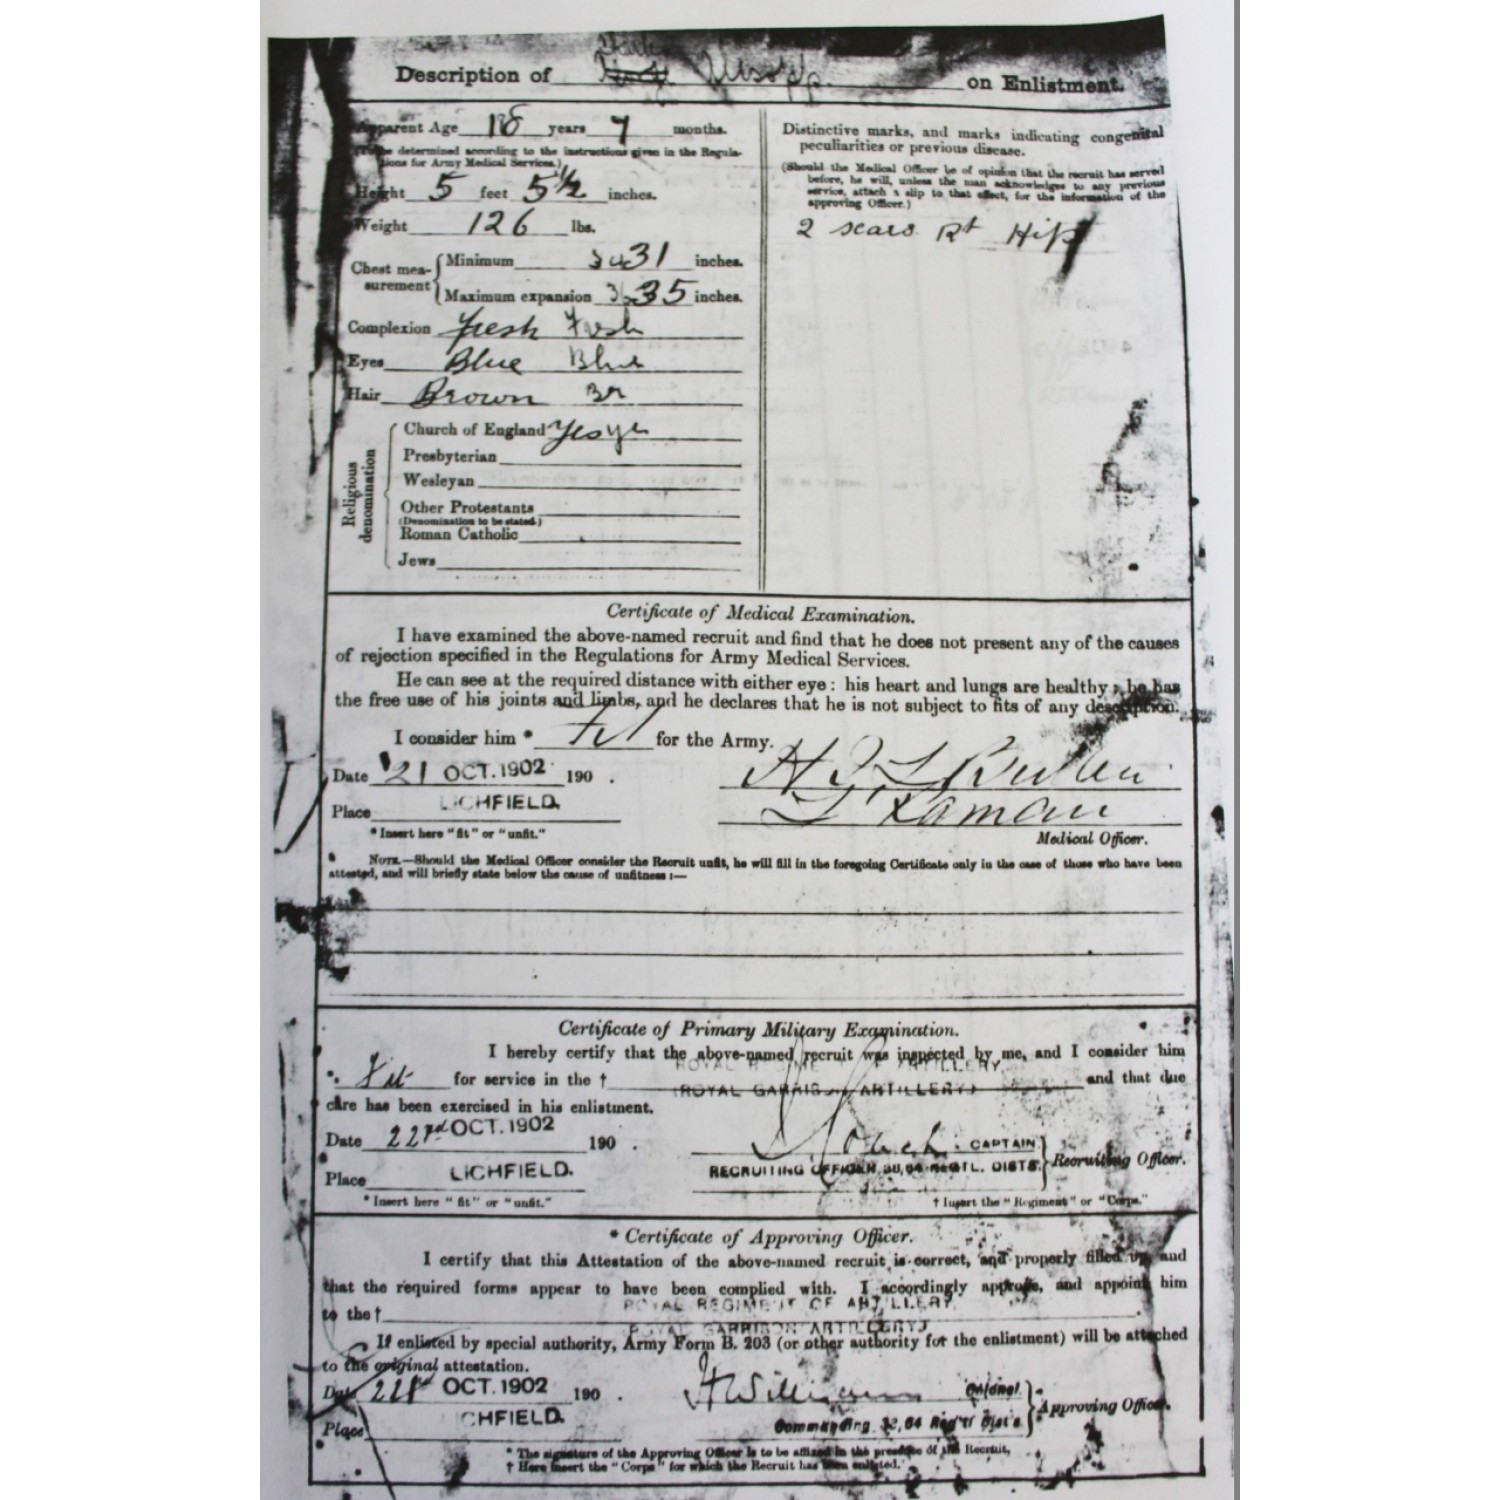 Description of Allsopp on Enlistment.
Apparent Age 18 years 7 months.
(To be determined according to the instructions given in the Regulations for Army Medical Services.)
Height 5 feet 5½ inches.
Weight 126 lbs.
Chest measurement
Minimum 34 31 inches.
Maximum expansion 36 35 inches.
Complexion Fresh Fresh
Eyes Blue Blue
Hair Brown Br
Religious denomination
Church of England Yes Yes
Presbyterian
Wesleyan
Other Protestants
(Denomination to be stated.)
Roman Catholic
Jews
Distinctive marks, and marks indicating congenital
peculiarities or previous disease.
(Should the Medical Officer be of opinion that the recruit has served
before, he will, unless the man acknowledges to any previous
service, attach a slip to that effect, for the information of the
approving Officer.)
2 scars Rt Hip
Certificate of Medical Examination.
I have examined the above-named recruit and find that he does not present any of the causes
of rejection specified in the Regulations for Army Medical Services.
He can see at the required distance with either eye: his heart and lungs are healthy; he has
the free use of his joints and limbs, and he declares that he is not subject to fits of any description.
I consider him * Fit for the Army.
Date 21 OCT. 1902 190 .
Place LICHFIELD.
* Insert here "fit" or "unfit."
Medical Officer.
NOTE.—Should the Medical Officer consider the Recruit unfit, he will fill in the foregoing Certificate only in the case of those who have been
attested, and will briefly state below the cause of unfitness:—
Certificate of Primary Military Examination.
I hereby certify that the above-named recruit was inspected by me, and I consider him
ROYAL REGIMENT OF ARTILLERY
* Fit for service in the † and that due
(ROYAL GARRISON ARTILLERY)
care has been exercised in his enlistment.
Date 22nd OCT. 1902 190 .
CAPTAIN
Place LICHFIELD.
RECRUITING OFFICER, REGTL. DISTS. Recruiting Officer.
* Insert here "fit" or "unfit."
† Insert the "Regiment" or "Corps."
* Certificate of Approving Officer.
I certify that this Attestation of the above-named recruit is correct, and properly filled up, and
that the required forms appear to have been complied with. I accordingly approve, and appoint him
ROYAL REGIMENT OF ARTILLERY
to the †
(ROYAL GARRISON ARTILLERY)
If enlisted by special authority, Army Form B. 203 (or other authority for the enlistment) will be attached
to the original attestation.
Date 22nd OCT. 1902 190 .
H Williams Colonel
Approving Officer.
Place LICHFIELD.
Commanding Reg'tl Dist's.
* The signature of the Approving Officer is to be affixed in the presence of the Recruit.
† Here insert the "Corps" for which the Recruit has been enlisted.